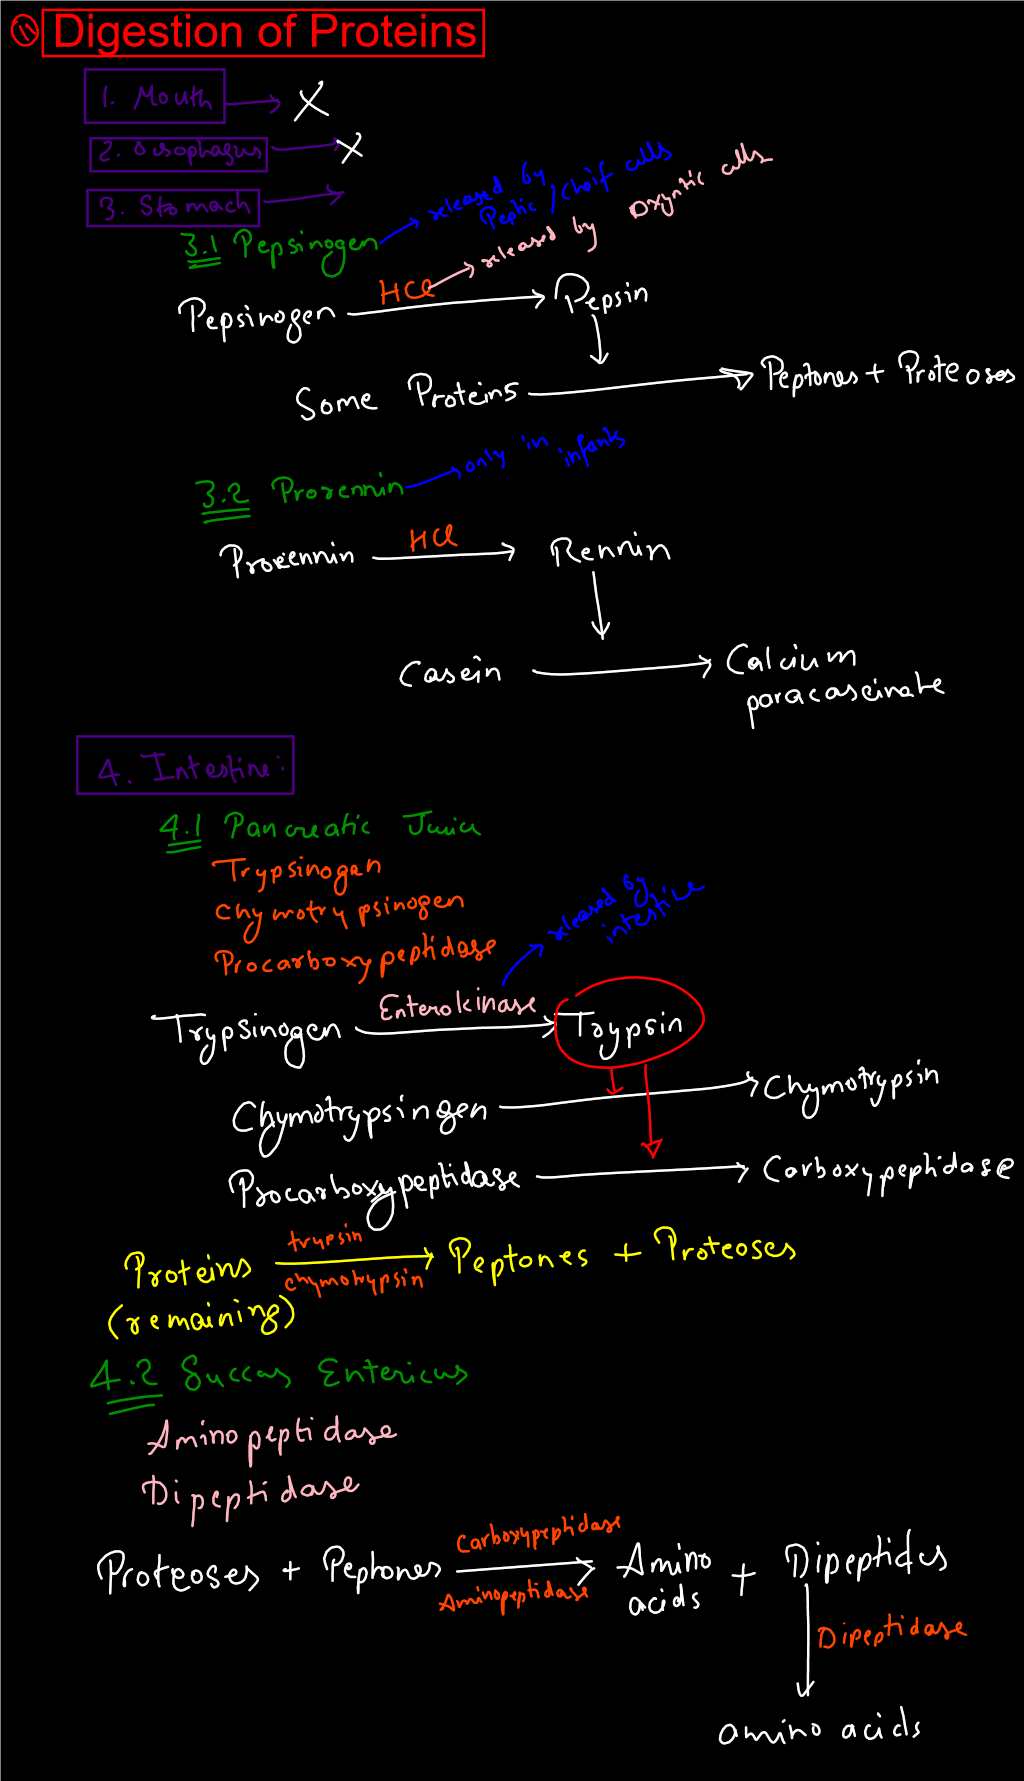 11 Digestion of Proteins
1. Mouth → X
2. Oesophagus → X
3. Stomach →
3.1 Pepsinogen → released by Peptic / Cheif cells
Pepsinogen HCl → Pepsin
→ released by Oxyntic cells
Some Proteins → Peptones + Proteoses
3.2 Prorennin → only in infants
Prorennin HCl → Rennin
Casein → Calcium
paracaseinate
4. Intestine:
4.1 Pancreatic Juice
Trypsinogen
Chymotrypsinogen
Procarboxypeptidase
→ released by
intestine
Trypsinogen Enterokinase → Trypsin
Chymotrypsingen → Chymotrypsin
Procarboxypeptidase → Carboxypeptidase
trypsin
Proteins → Peptones + Proteoses
chymotrypsin
(remaining)
4.2 Succas Entericus
Aminopeptidase
Dipeptidase
Carboxypeptidase
Proteoses + Peptones → Amino acids + Dipeptides
Aminopeptidase
Dipeptidase
amino acids